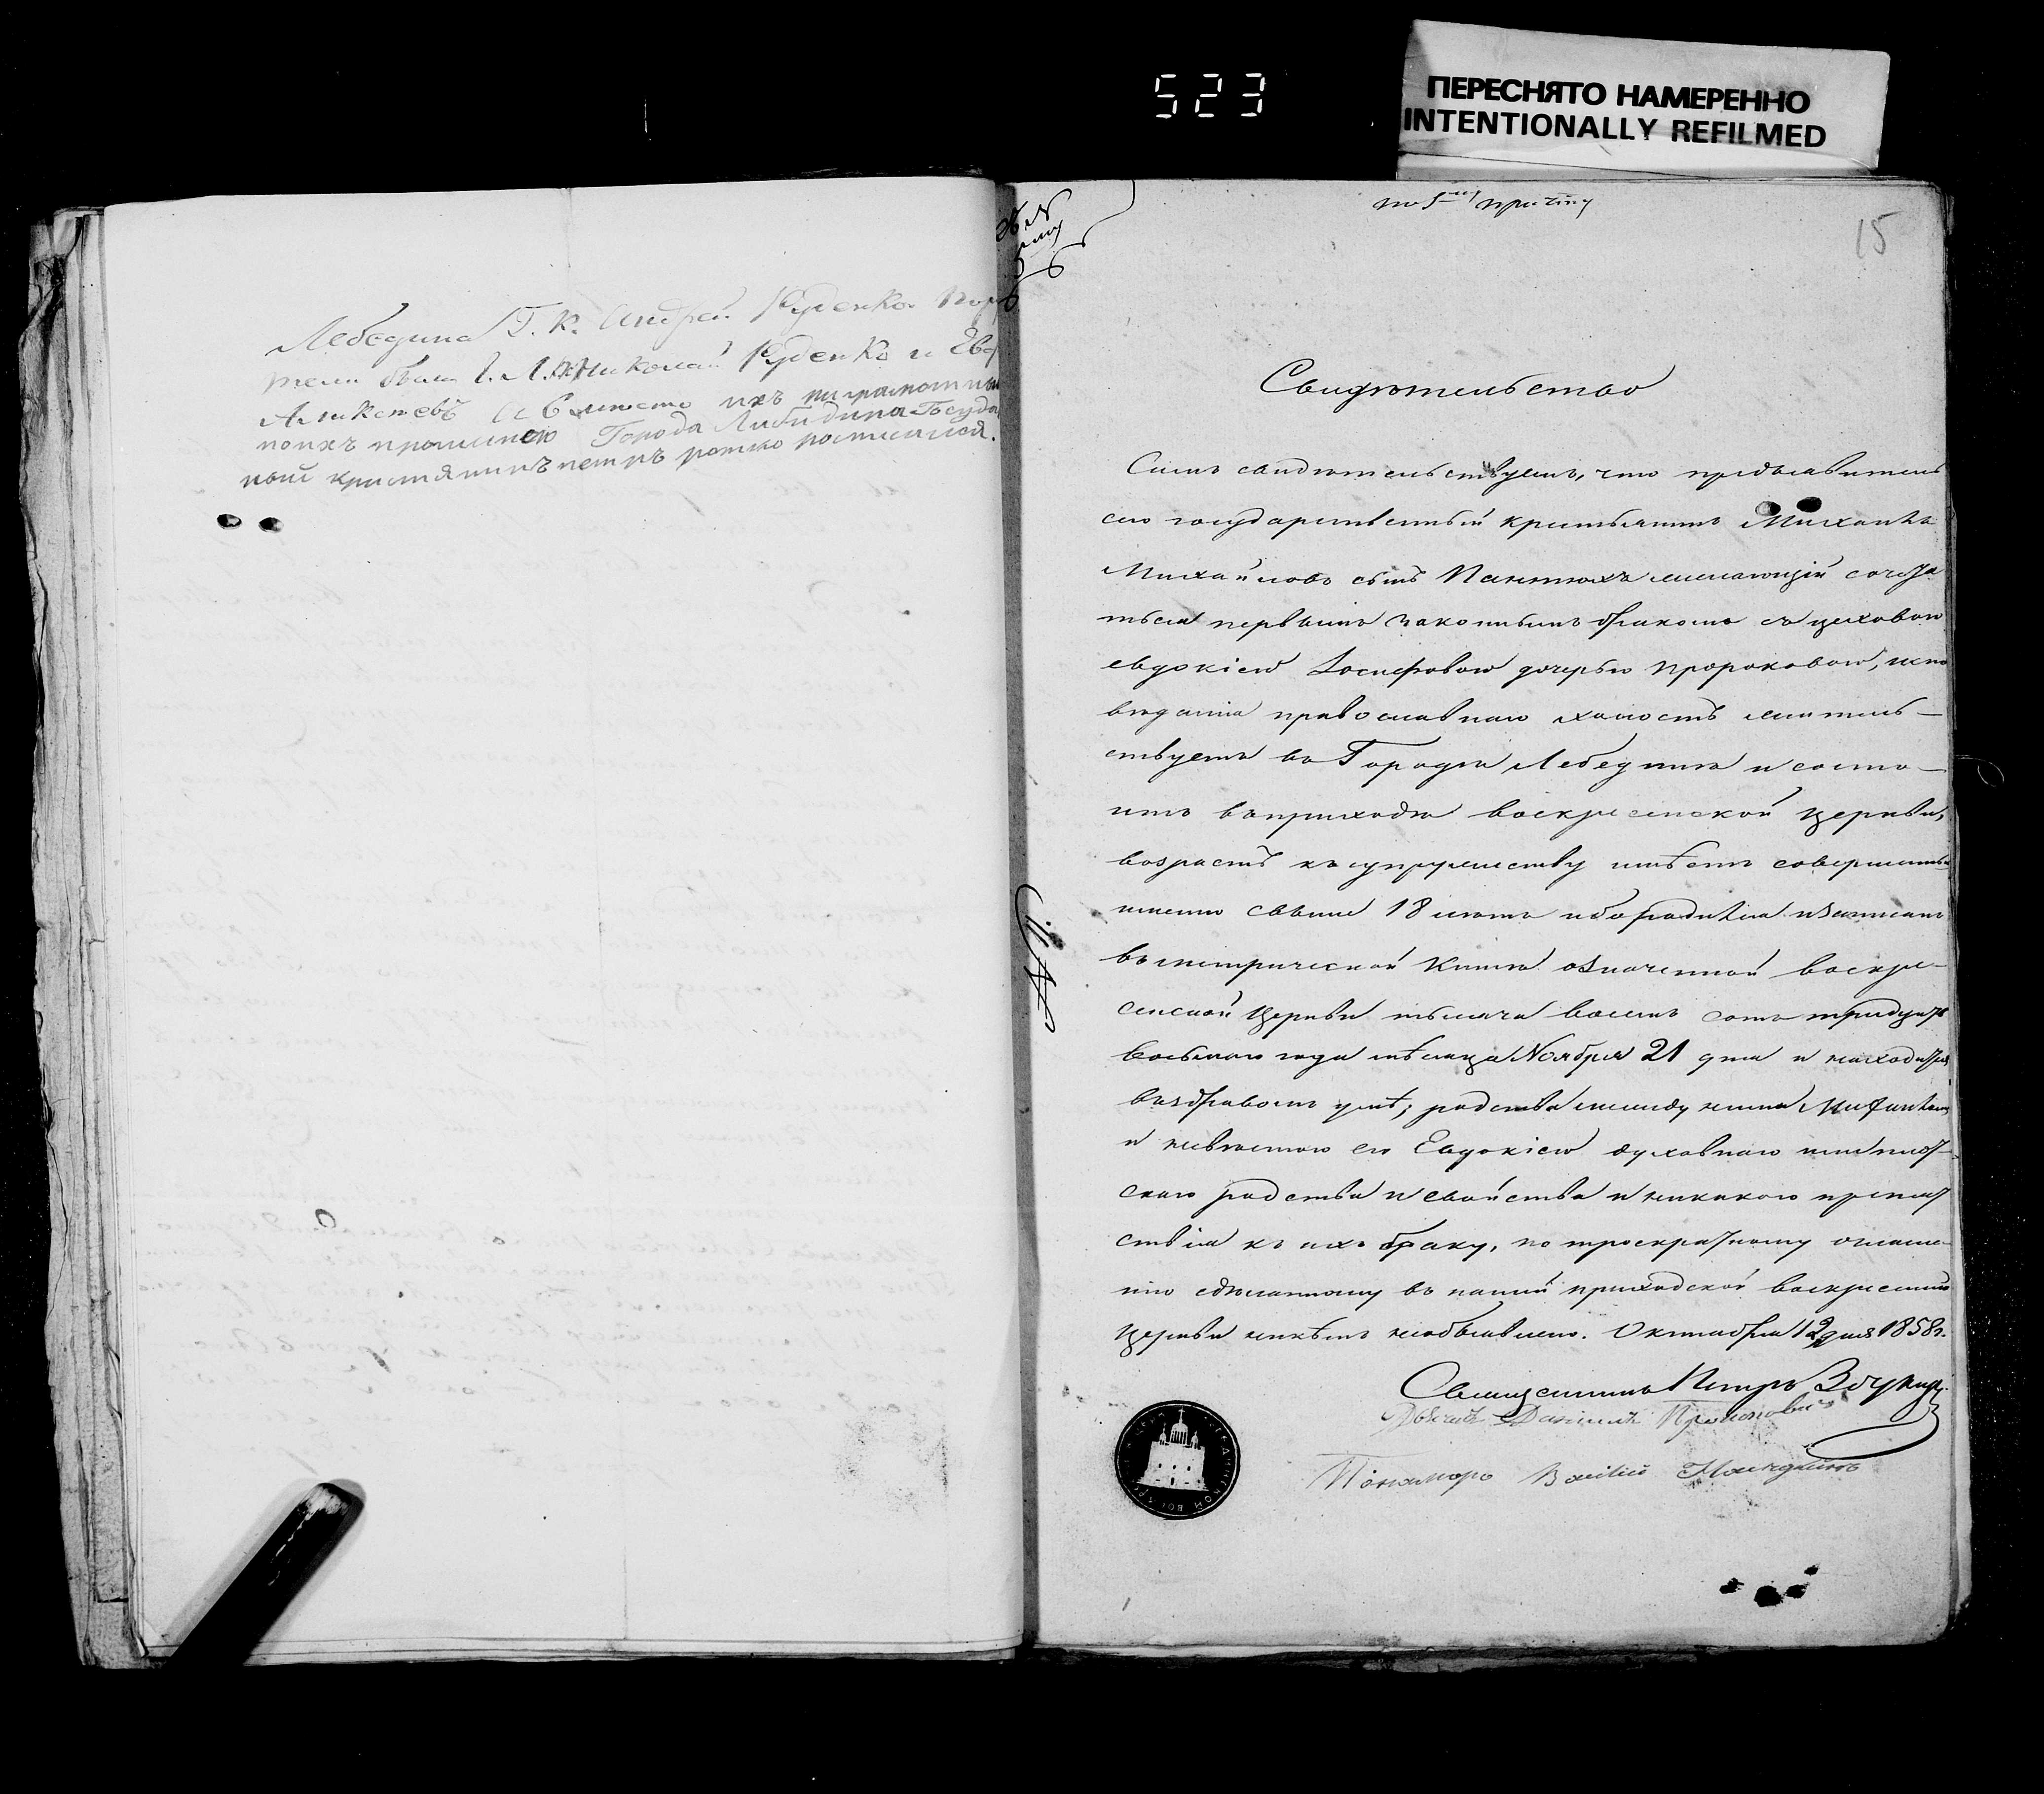 523
ПЕРЕСНЯТО НАМЕРЕННО
INTENTIONALLY REFILMED
15
Лебедина Г. К. Андрей Руденко
тели были Г. Л. Николай Руденко и
Аликсеевъ А в место ихъ
поихъ прошенею Города Либидина Госуда
ный кристянинъ петръ росписался.
Свидѣтельство
Симъ свидѣтельствуемъ, что предъявитель
сего государственный крестьянинъ Михаилъ
Михайловъ сынъ Пантюхъ желающій сочета
ться первымъ законнымъ бракомъ съ цеховою
евдокіею Іосифовою дочерью Пророковою, испо
вѣданія православнаго холостъ житель-
ствуетъ въ Городѣ Лебединѣ и состо-
итъ въ приходѣ воскресенской церкви,
возрастъ къ супружеству имѣетъ совершенный
именно свыше 18 лѣтъ ибо родился и записанъ
въ метрической книгѣ означенной воскре-
сенской церкви тысяча восемъ сотъ тридцать
восьмаго года мѣсяца Ноября 21 дня и находится
въ здравомъ умѣ; родства между нимъ Михаиломъ
и невѣстою его Евдокіею духовнаго или плот-
скаго родства и свойства и никакого препят
ствія къ ихъ браку, по троекратному оглаше-
нію сдѣланному въ нашей приходской воскресенской
церкви никѣмъ необъявлено. Октября 12 дня 1858 г.
Священникъ Петръ
Дьячекъ Даніилъ Прокоповичъ
Пономарь Василій